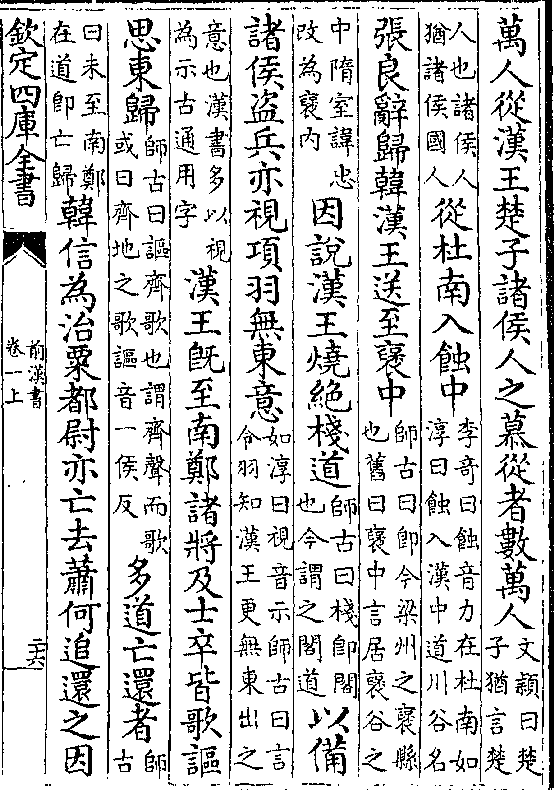 萬人從漢王楚子諸侯人之慕從者數萬人文頴曰楚子猶言楚
人也諸侯人猶諸侯國人從杜南入蝕中李竒曰蝕音力在杜南如淳曰蝕入漢中道川谷名
張良辭歸韓漢王送至襃中師古曰即今梁州之襃縣也舊曰襃中言居襃谷之
中隋室諱忠改為襃内因說漢王燒絶棧道師古曰棧即閣也今謂之閣道以備
諸侯盜兵亦視項羽無東意如淳曰視音示師古曰言令羽知漢王更無東出之
意也漢書多以視為示古通用字漢王旣至南鄭諸將及士卒皆歌謳
思東歸師古曰謳齊歌也謂齊聲而歌或曰齊地之歌謳音一侯反多道亡還者師古
曰未至南鄭在道即亡歸韓信為治粟都尉亦亡去蕭何追還之因
欽定四庫全書
前漢書
卷一上
二六